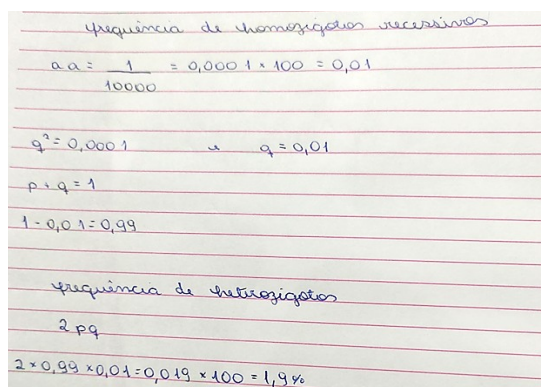 frequência de homozigotos recessivos
aa = 1/10000 = 0,0001 × 100 = 0,01
q² = 0,0001 e q = 0,01
p + q = 1
1 - 0,01 = 0,99
frequência de hetrozigotos
2pq
2 × 0,99 × 0,01 = 0,019 × 100 = 1,9%